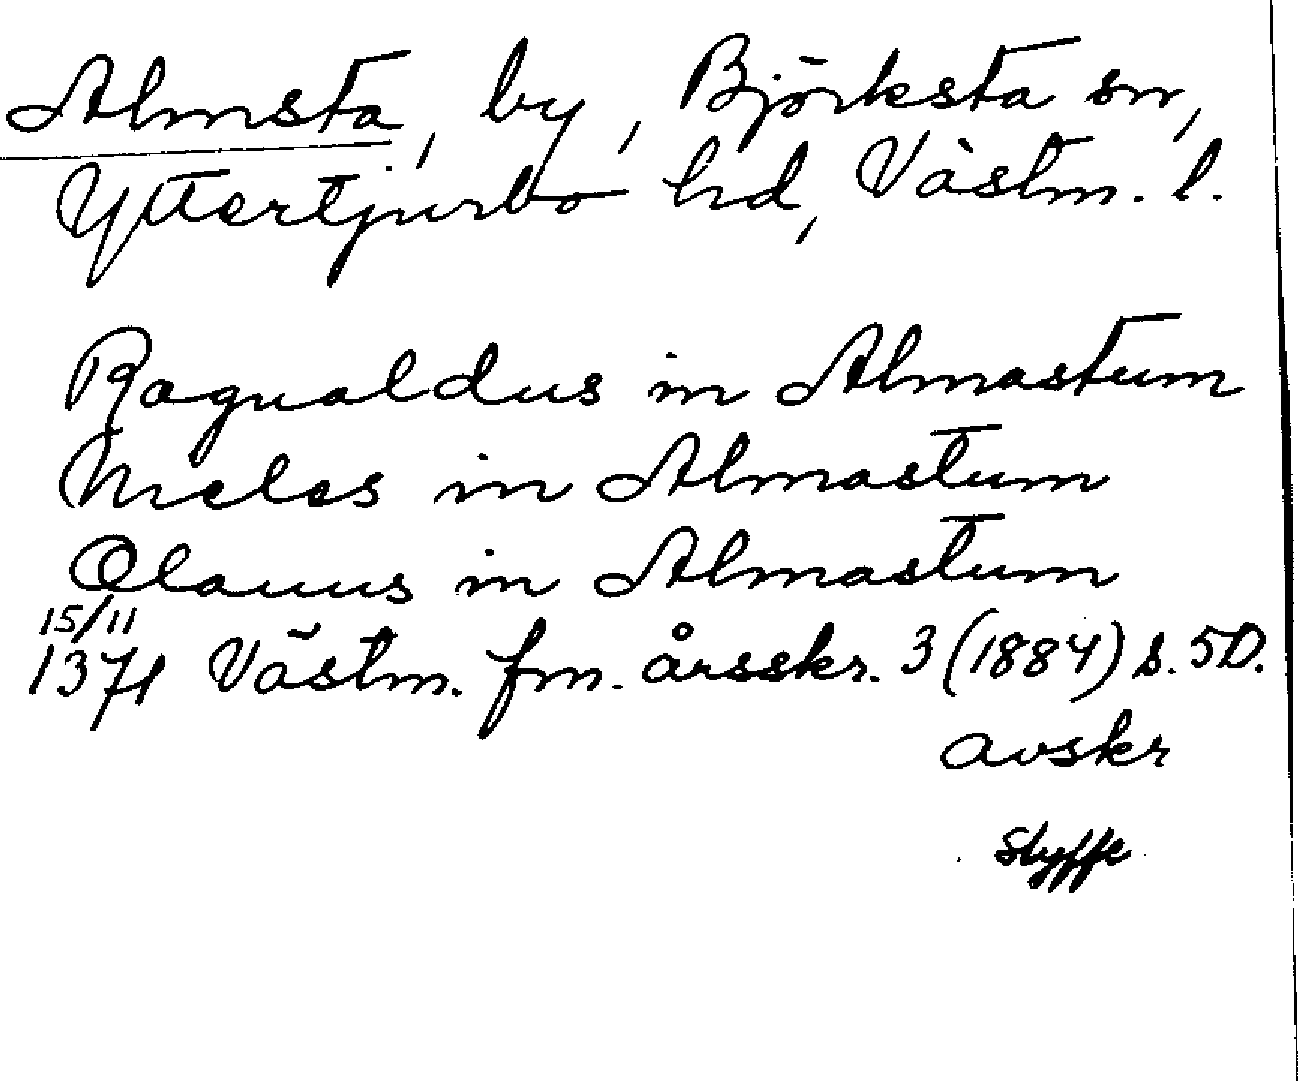 Almsta, by, Björksta sn,
Yttertjurbo hd, Västm. l.
Ragualdus in Almastum
Nieles in Almastum
Olauus in Almastum
15/11
1371 Västm. fm. årsskr. 3 (1884) s. 50.
avskr
Styffe